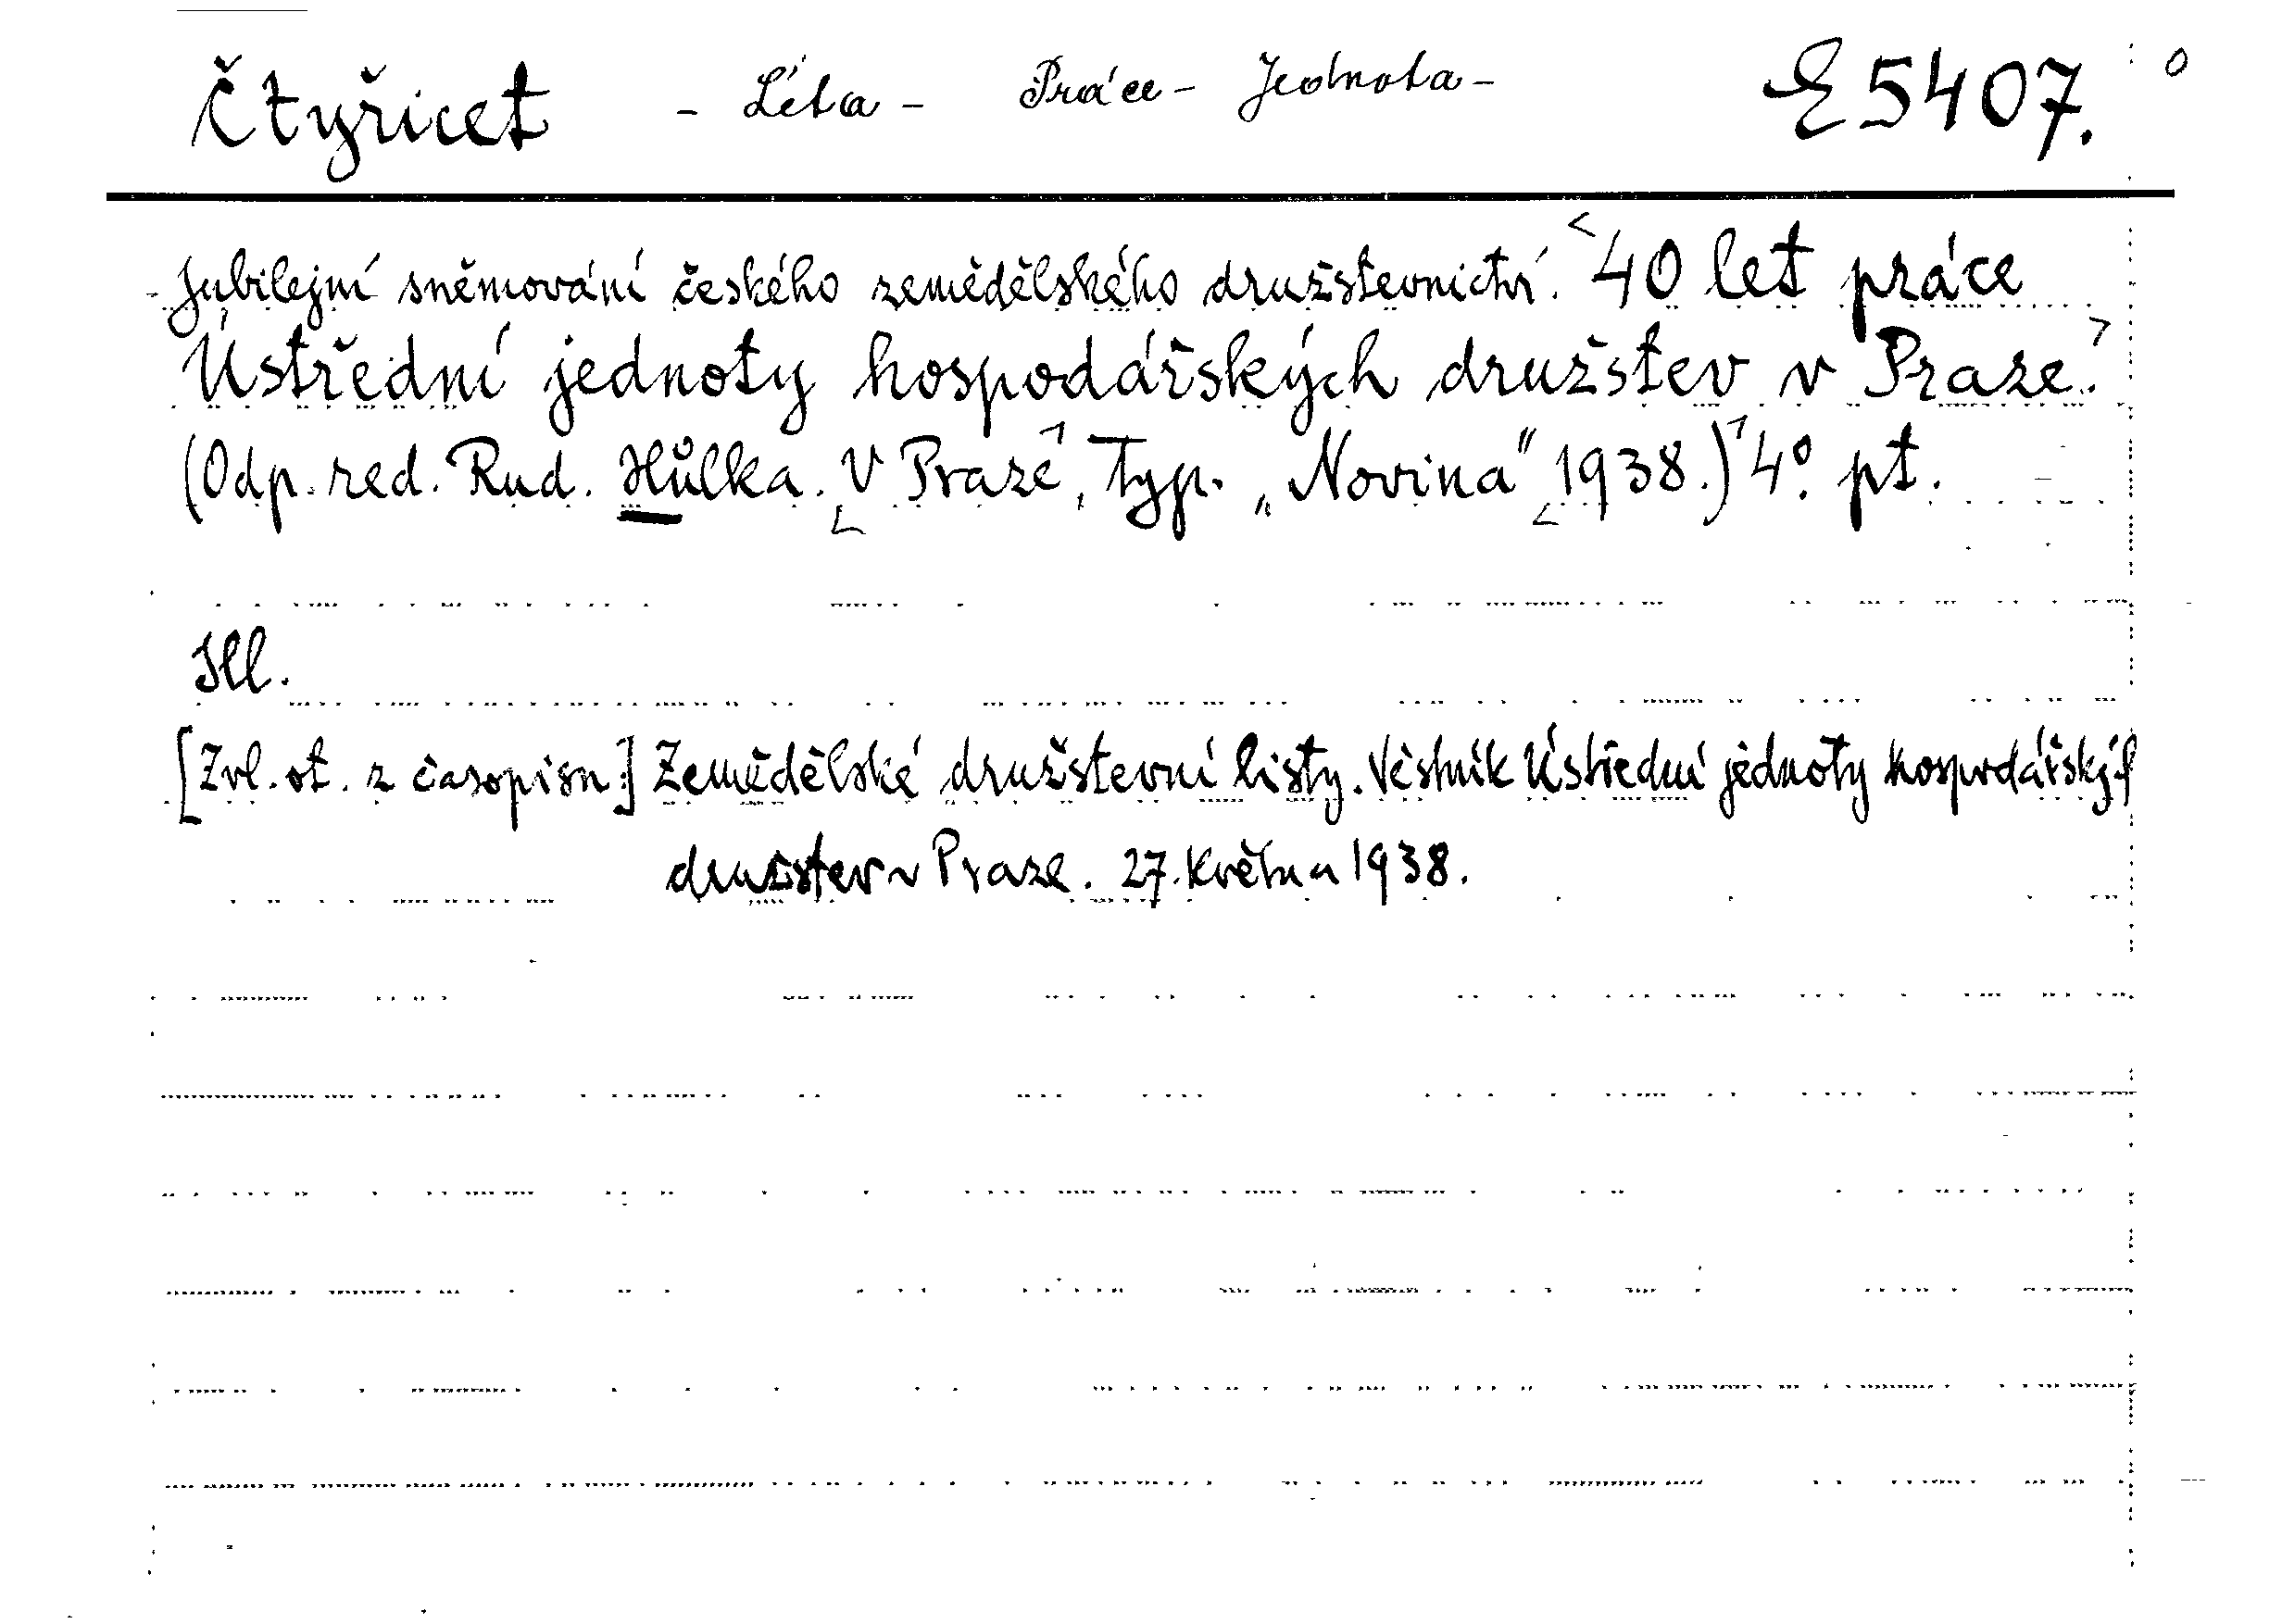 Čtyřicet - Léta - Práce - Jednota - E 5407. o
Jubilejní sněmování českého zemědělského družstevnictví. <40 let práce
Ústřední jednoty hospodářských družstev v Praze.>
(Odp. red. Rud. Hůlka. V Praze, Typ. „Novina" 1938.) 4° pt.
Ill.
[Zvl. ot. z časopisu:] Zemědělské družstevní listy. Věstník Ústřední jednoty hospodářských
družstev v Praze. 27. května 1938.